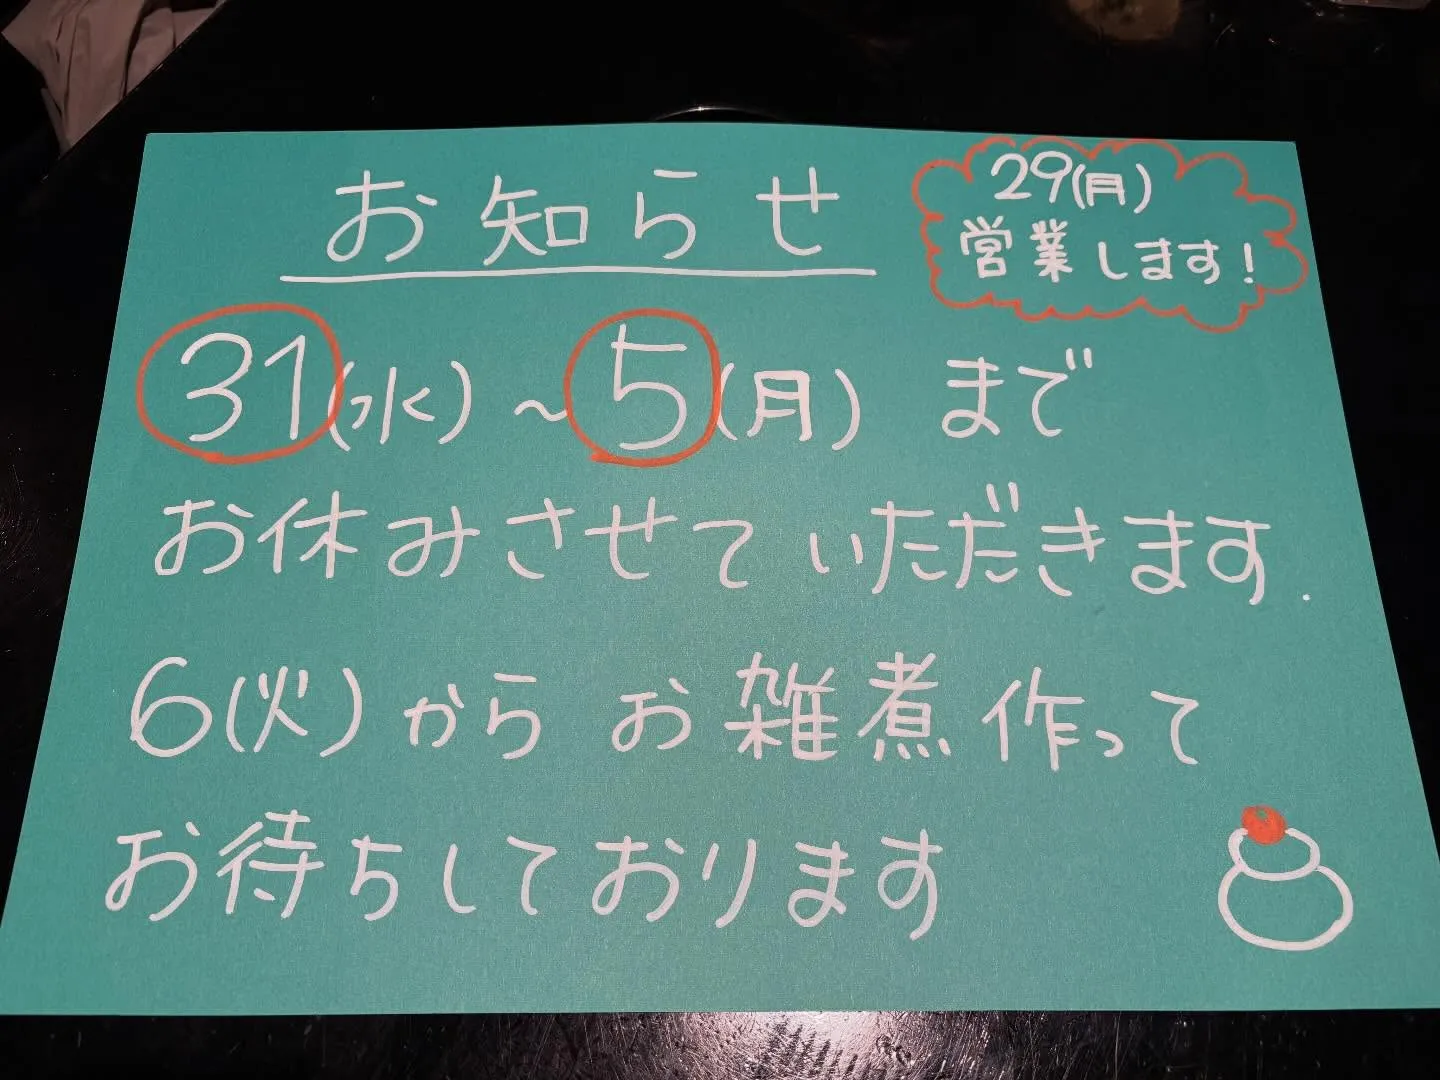 お知らせ
29(月)
営業します!
31(水)～5(月)まで
お休みさせていただきます.
6(火)からお雑煮作って
お待ちしております